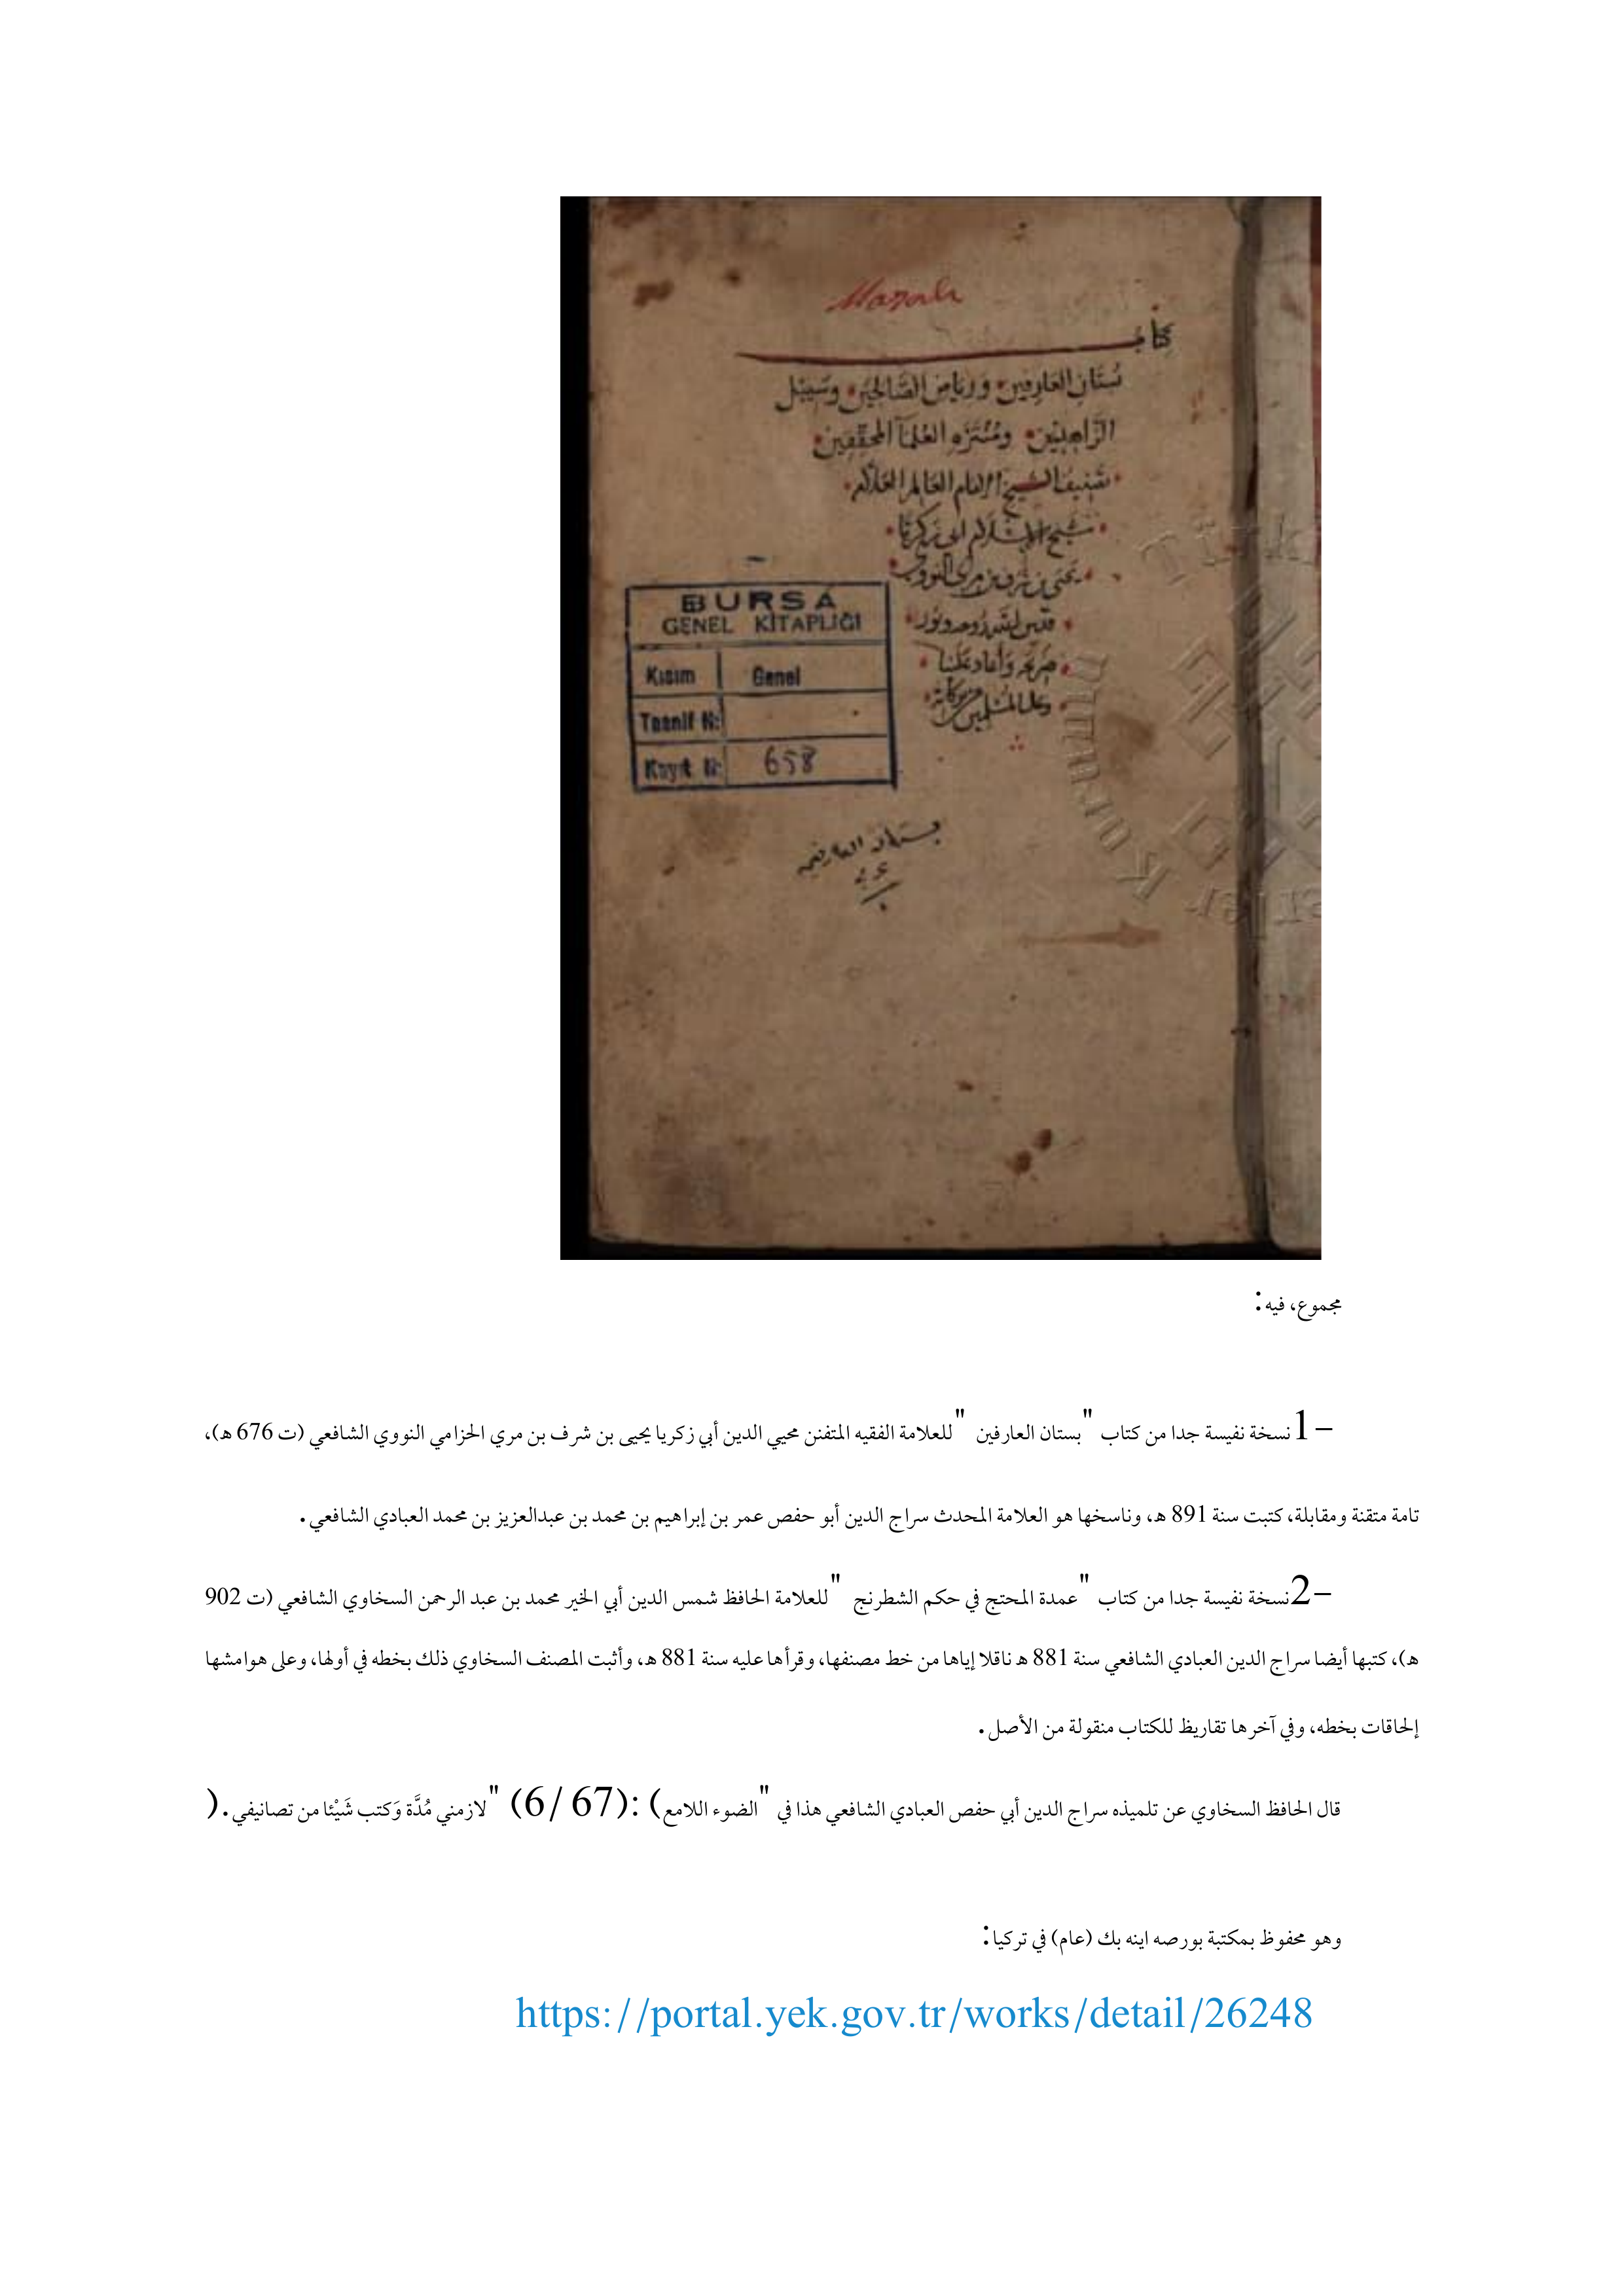 Manzalı
كتاب
بُستَان العَارفين وَرياض الصَّالحين وسَبيْل
الزَّاهدين ومُنْتَزَه العُلمآ المحقّقين
تصنيف الشيخ الإمام العَالم العَلّامَة
شيخ الإسْلام ابى زكريَّا
يَحيَى بن شرف بن مرى النووى
قدس الله روحه ونور
ضريحه وَأعاد عَلَينا
وعلى المُسْلمين من بركاته
BURSA
GENEL KİTAPLIĞI
Kısım Genel
Tasnif N:
Kayıt N: 658
بستان العارفين
مجموع، فيه:
1- نسخة نفيسة جدا من كتاب "بستان العارفين" للعلامة الفقيه المتفنن محيي الدين أبي زكريا يحيى بن شرف بن مري الحزامي النووي الشافعي (ت 676 هـ)،
تامة متقنة ومقابلة، كتبت سنة 891 هـ، وناسخها هو العلامة المحدث سراج الدين أبو حفص عمر بن إبراهيم بن محمد بن عبدالعزيز بن محمد العبادي الشافعي.
2- نسخة نفيسة جدا من كتاب "عمدة المحتج في حكم الشطرنج" للعلامة الحافظ شمس الدين أبي الخير محمد بن عبد الرحمن السخاوي الشافعي (ت 902
هـ)، كتبها أيضا سراج الدين العبادي الشافعي سنة 881 هـ ناقلا إياها من خط مصنفها، وقرأها عليه سنة 881 هـ، وأثبت المصنف السخاوي ذلك بخطه في أولها، وعلى هوامشها
إلحاقات بخطه، وفي آخرها تقاريظ للكتاب منقولة من الأصل.
قال الحافظ السخاوي عن تلميذه سراج الدين أبي حفص العبادي الشافعي هذا في "الضوء اللامع) :(67 /6) "لازمني مُدَّة وَكتب شَيْئا من تصانيفي.(
وهو محفوظ بمكتبة بورصه اينه بك (عام) في تركيا:
https://portal.yek.gov.tr/works/detail/26248